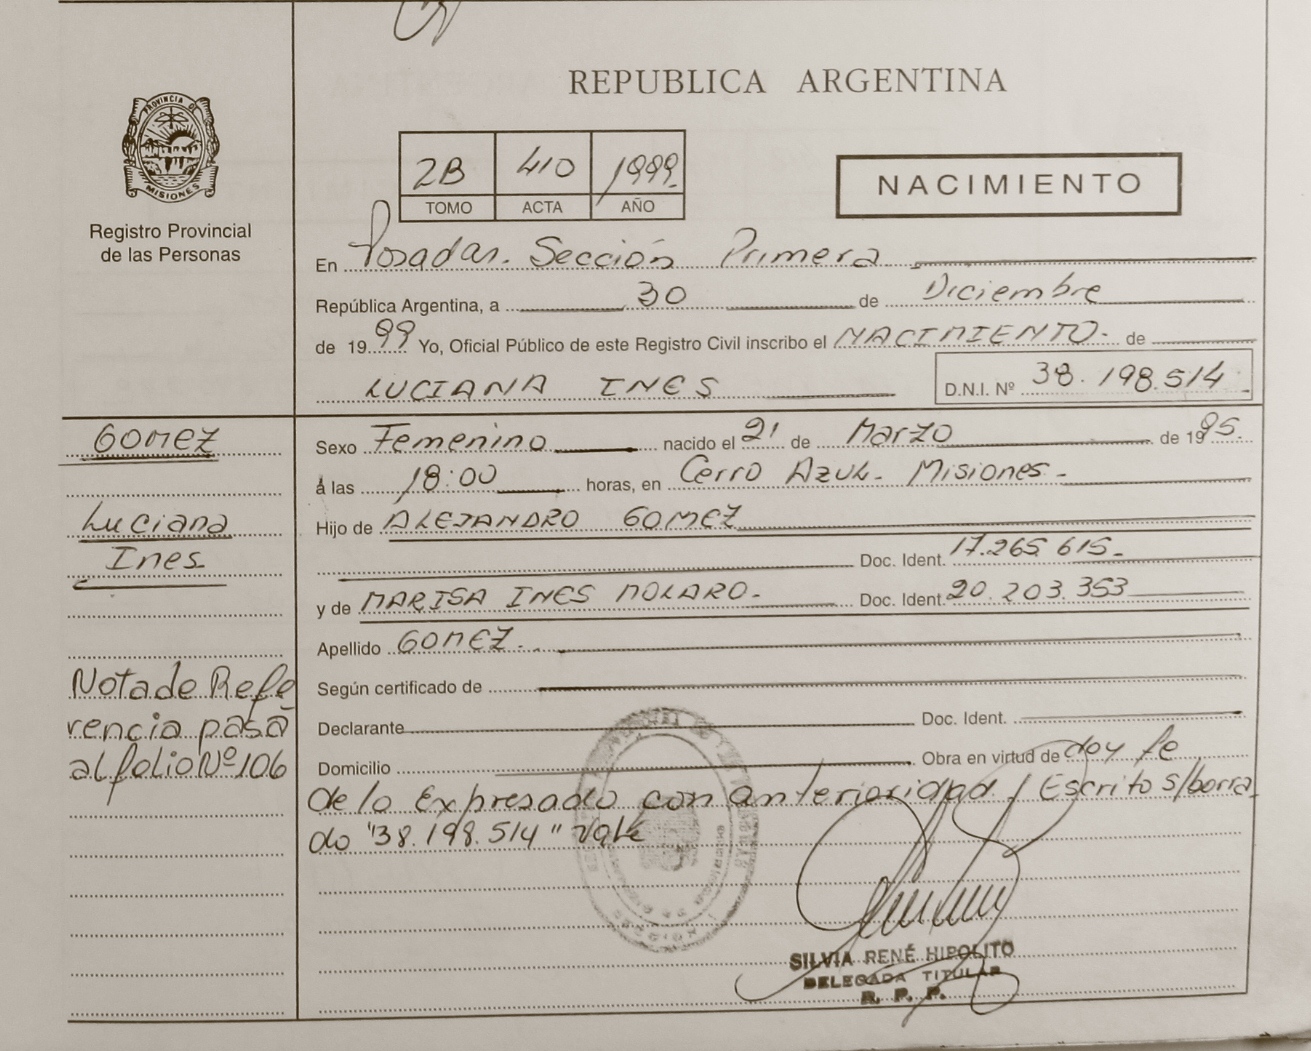 REPUBLICA ARGENTINA
PROVINCIA DE
MISIONES
Registro Provincial
de las Personas
2B 410 1999
TOMO ACTA AÑO
NACIMIENTO
En Posadas. Sección Primera
República Argentina, a 30 de Diciembre
de 1999 Yo, Oficial Público de este Registro Civil inscribo el NACIMIENTO de
LUCIANA INES D.N.I. Nº 38.198.514
GOMEZ
Luciana
Ines
Nota de Refe
rencia pasa
al folio Nº 106
Sexo Femenino nacido el 21 de Marzo de 1995.
á las 18:00 horas, en Cerro Azul - Misiones -
Hijo de ALEJANDRO GOMEZ
Doc. Ident. 17.265 615 -
y de MARISA INES MOLARO. - Doc. Ident. 20.203.353
Apellido GOMEZ. -
Según certificado de
Declarante Doc. Ident.
Domicilio Obra en virtud de doy fe
de lo Expresado con anterioridad / Escrito s/borra
do "38.198.514" Vale
SILVIA RENÉ HIPOLITO
DELEGADA TITULAR
R. P. P.